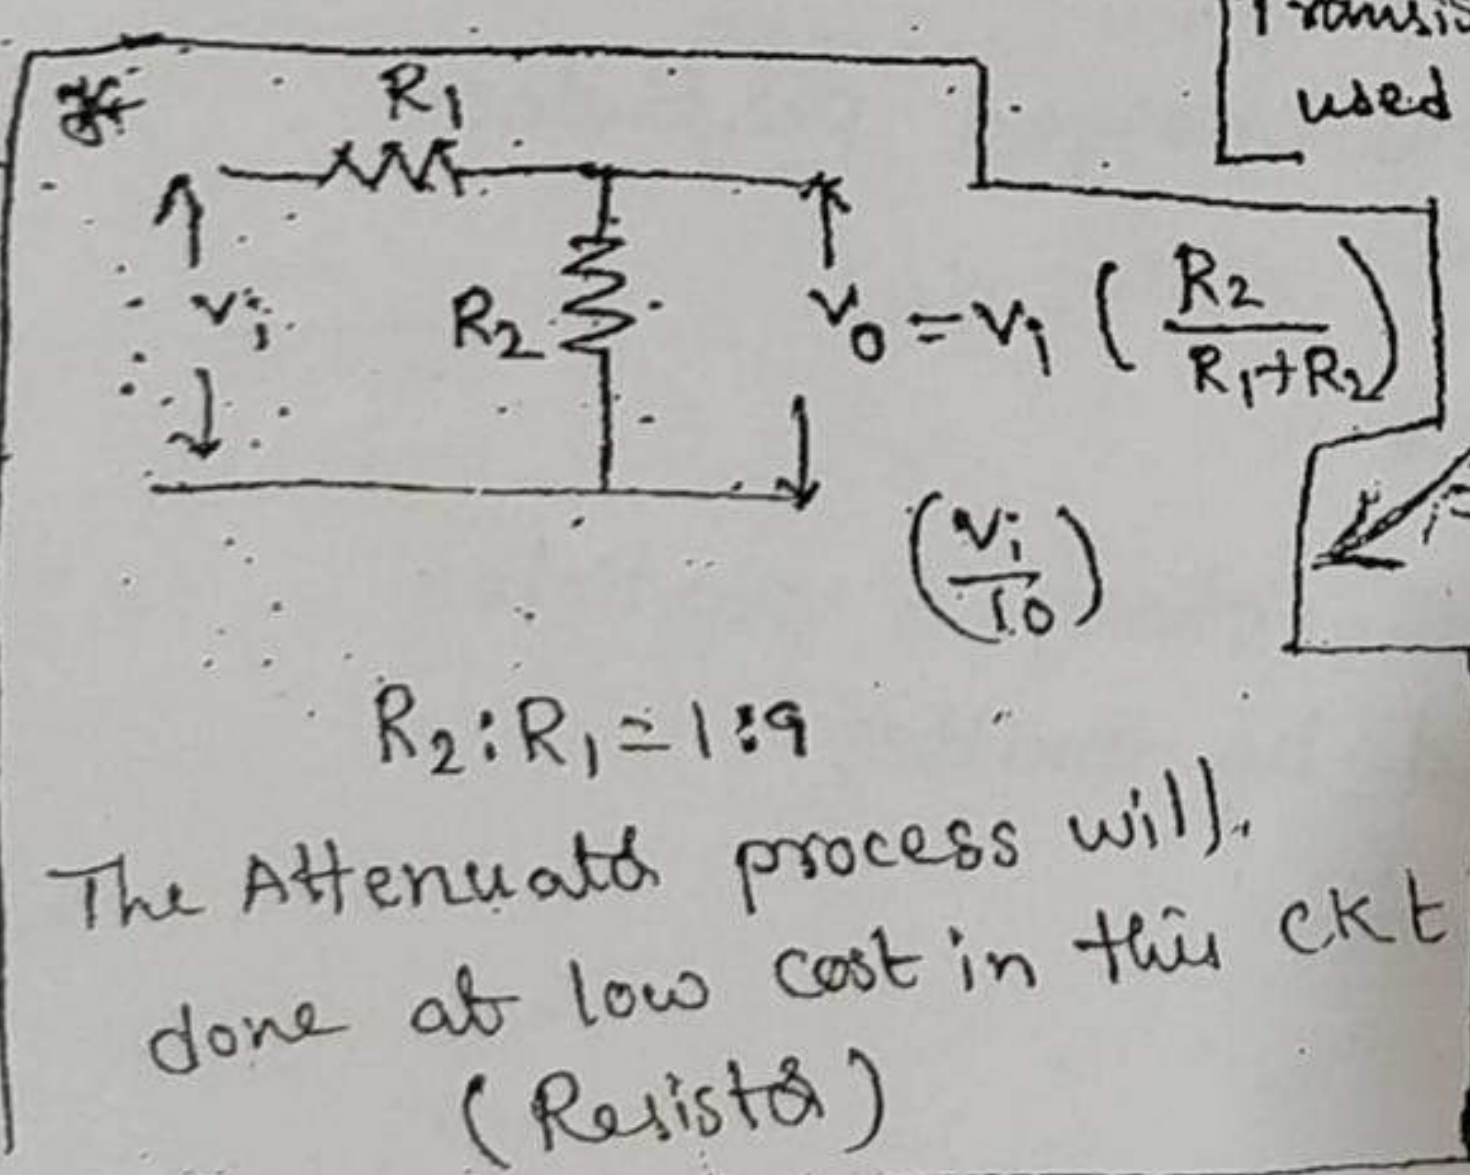 used
R1
vi
R2
vo = vi ( R2 / R1+R2 )
( vi / 10 )
R2 : R1 = 1 : 9
The Attenuator process will
done at low cost in this ckt
( Resistor )